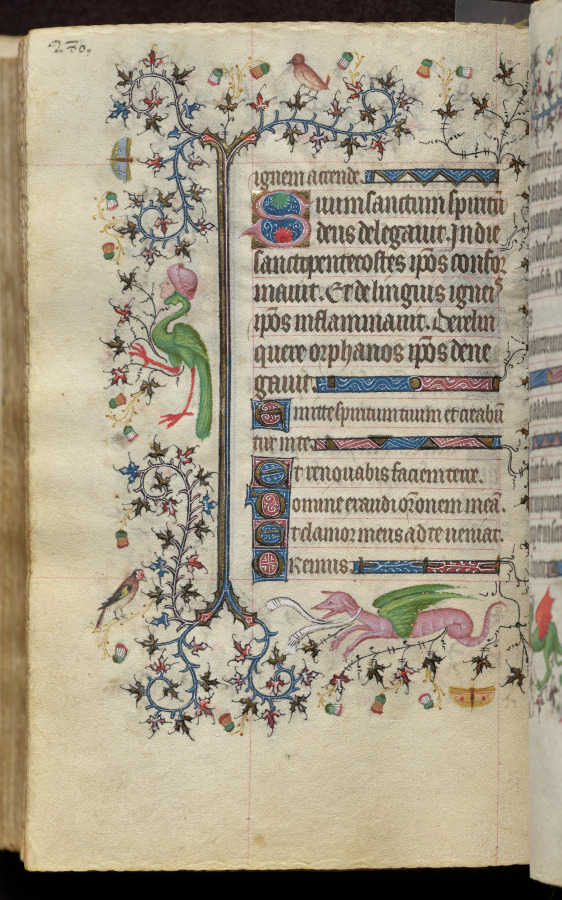 280.
ignem accende.
Suum sanctum spiritū
deus delegavit. In die
sancto pentecostes ip̄os confor
mavit. Et de linguis igneis
ip̄os inflammavit. Derelin
quere orphanos ip̄os dene
gavit.
Emitte spiritum tuum et creabū
tur
Et renovabis faciem terre.
Domine exaudi or̄onem meā.
Et clamor meus ad te veniat.
Oremus.